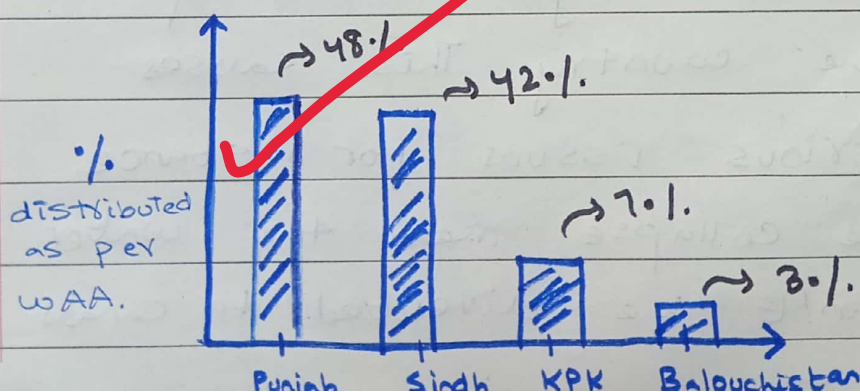 48%
42%
%
distributed
as per
WAA.
7%
3%
Punjab
Sindh
KPK
Balouchistan